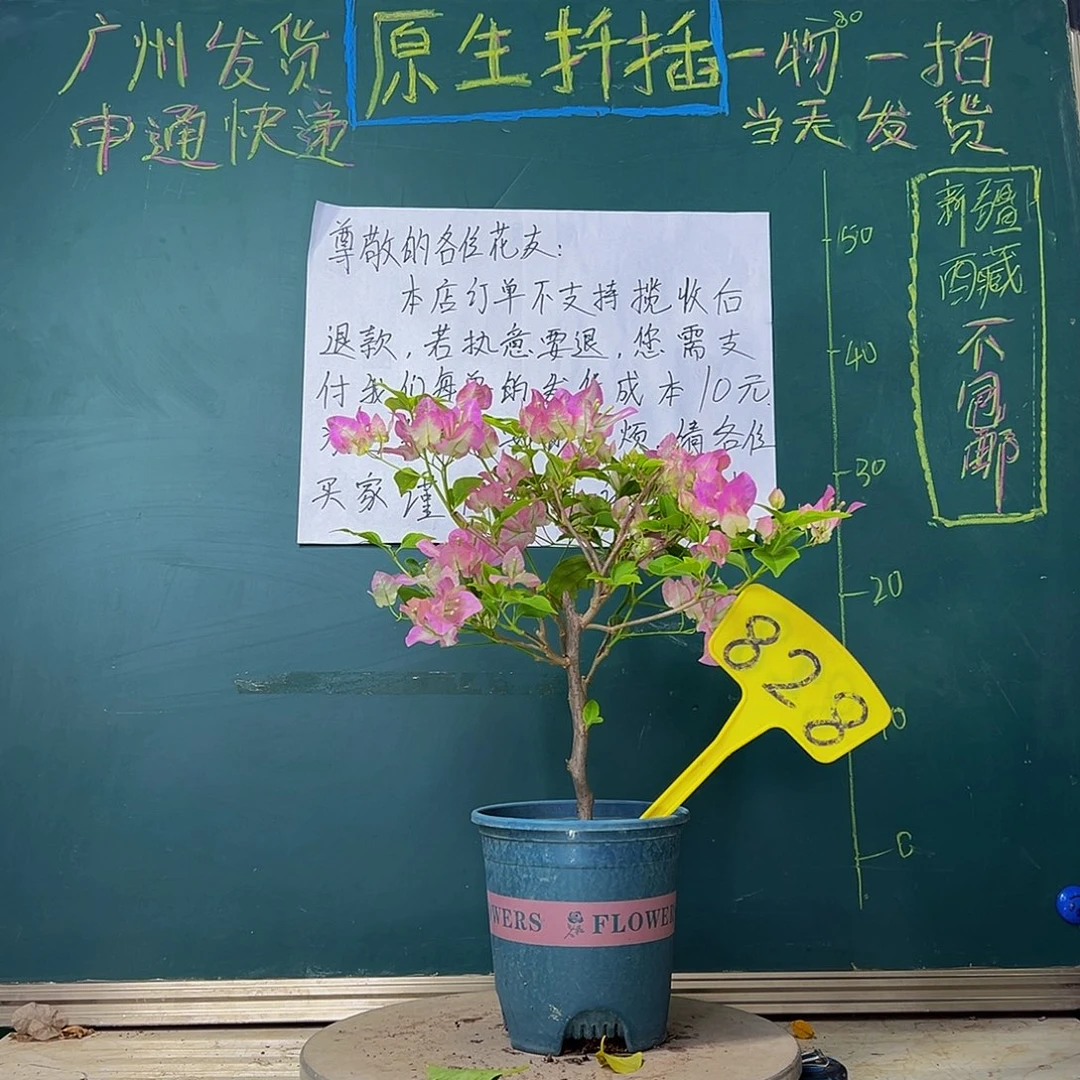 广州发货
原生扦插
一物一拍
申通快递
当天发货
尊敬的各位花友：
本店订单不支持揽收后
退款，若执意要退，您需支
付我们每单的发货成本10元
烦，请各位
买家谨
新疆
西藏
不包邮
50
40
30
20
0
828
WERS FLOWER